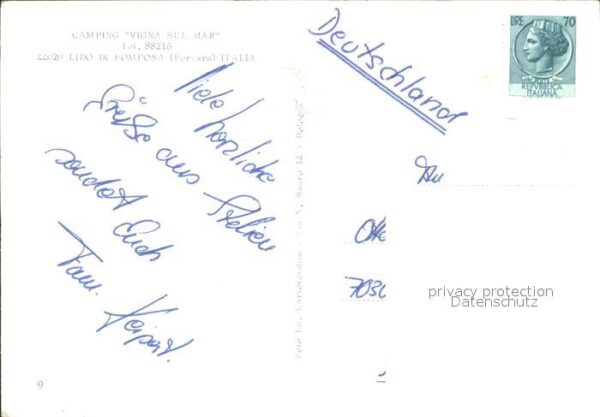 CAMPING "VIGNA SUL MAR"
Tel. 88216
44020 LIDO DI POMPOSA (Ferrara) ITALIA
Viele herzliche
Grüße aus Italien
sendet Euch
Fam.
Deutschland
LIRE 70
REPVBBLICA
ITALIANA
An
7030
privacy protection
Datenschutz
9